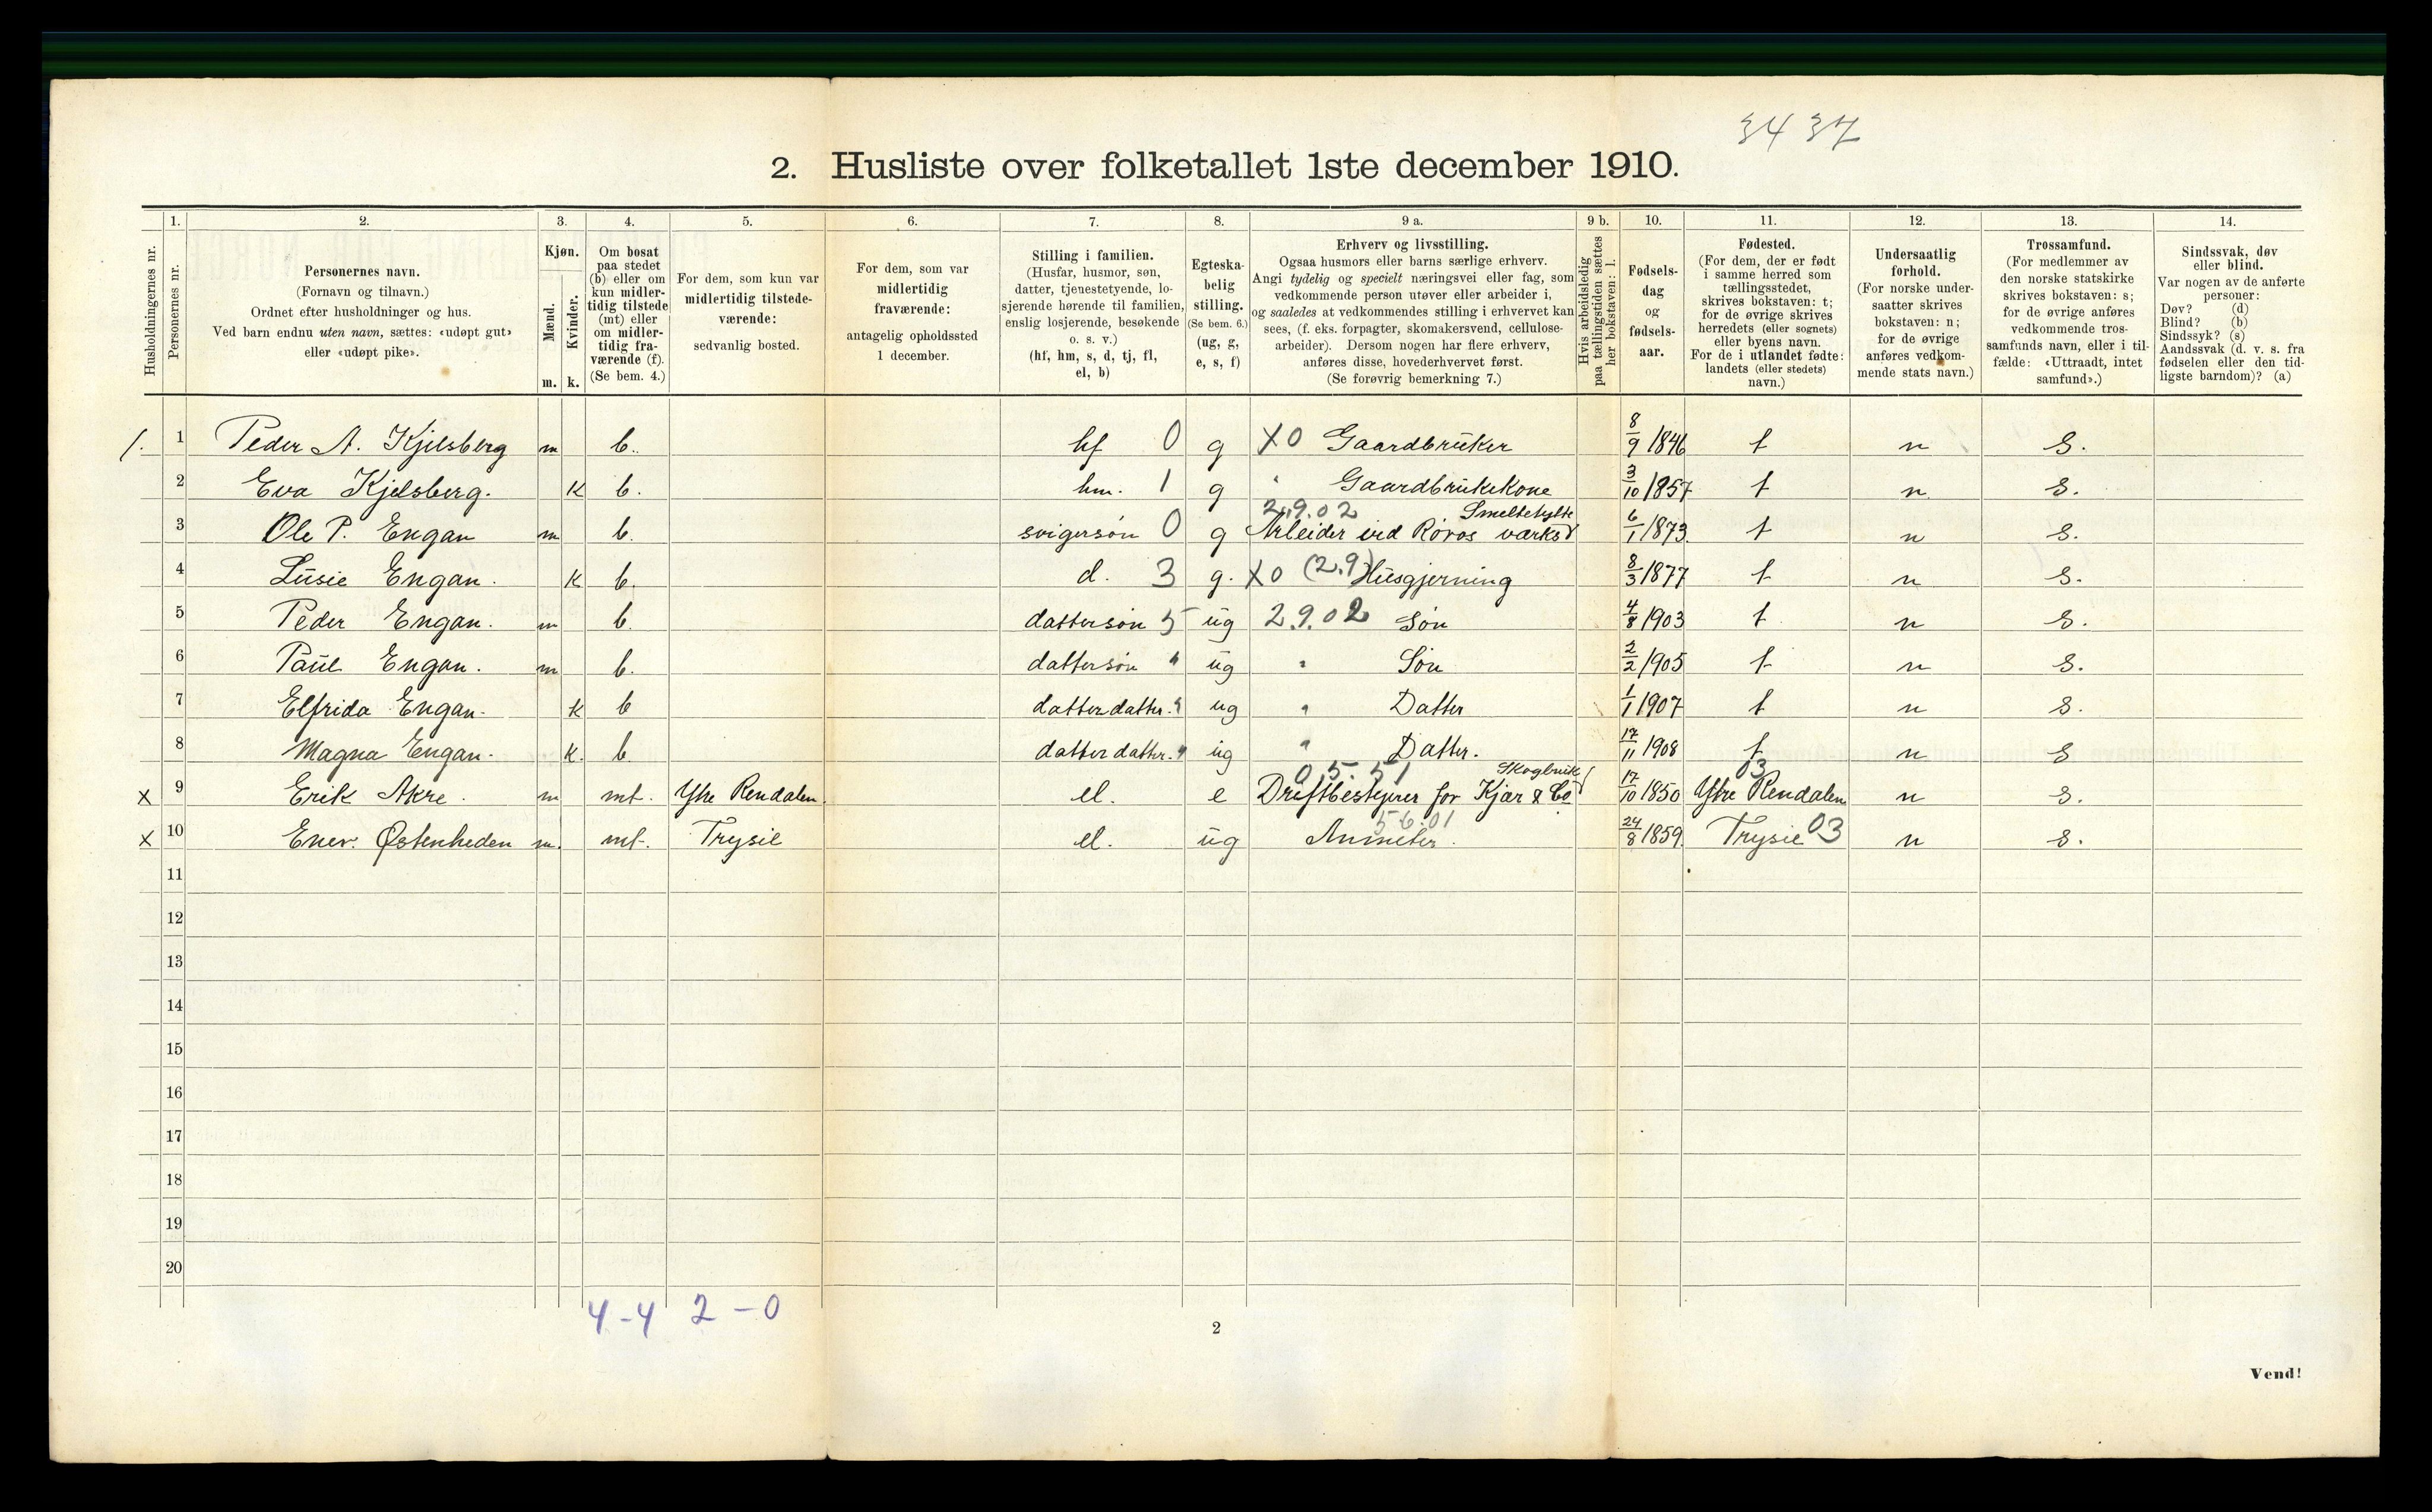 34 37
2. Husliste over folketallet 1ste december 1910.
Husholdningernes nr.
1. Personernes nr.
2. Personernes navn.
(Fornavn og tilnavn.)
Ordnet efter husholdninger og hus.
Ved barn endnu uten navn, sættes: «udøpt gut»
eller «udøpt pike».
3. Kjøn.
Mænd. m.
Kvinder. k.
4. Om bosat
paa stedet
(b) eller om
kun midler-
tidig tilstede
(mt) eller
om midler-
tidig fra-
værende (f).
(Se bem. 4.)
5. For dem, som kun var
midlertidig tilstede-
værende:
sedvanlig bosted.
6. For dem, som var
midlertidig
fraværende:
antagelig opholdssted
1 december.
7. Stilling i familien.
(Husfar, husmor, søn,
datter, tjenestetyende, lo-
sjerende hørende til familien,
enslig losjerende, besøkende
o. s. v.)
(hf, hm, s, d, tj, fl,
el, b)
8. Egteska-
belig
stilling.
(Se bem. 6.)
(ug, g,
e, s, f)
9 a. Erhverv og livsstilling.
Ogsaa husmors eller barns særlige erhverv.
Angi tydelig og specielt næringsvei eller fag, som
vedkommende person utøver eller arbeider i,
og saaledes at vedkommendes stilling i erhvervet kan
sees, (f. eks. forpagter, skomakersvend, cellulose-
arbeider). Dersom nogen har flere erhverv,
anføres disse, hovederhvervet først.
(Se forøvrig bemerkning 7.)
9 b. Hvis arbeidsledig
paa tællingstiden sættes
her bokstaven: l.
10. Fødsels-
dag
og
fødsels-
aar.
11. Fødested.
(For dem, der er født
i samme herred som
tællingsstedet,
skrives bokstaven: t;
for de øvrige skrives
herredets (eller sognets)
eller byens navn.
For de i utlandet fødte:
landets (eller stedets)
navn.)
12. Undersaatlig
forhold.
(For norske under-
saatter skrives
bokstaven: n;
for de øvrige
anføres vedkom-
mende stats navn.)
13. Trossamfund.
(For medlemmer av
den norske statskirke
skrives bokstaven: s;
for de øvrige anføres
vedkommende tros-
samfunds navn, eller i til-
fælde: «Uttraadt, intet
samfund».)
14. Sindssvak, døv
eller blind.
Var nogen av de anførte
personer:
Døv? (d)
Blind? (b)
Sindssyk? (s)
Aandssvak (d. v. s. fra
fødselen eller den tid-
ligste barndom)? (a)
1. 1 Peder A. Kjelsberg m b. hf 0 g X0 Gaardbruker 8/9 1846 t n s.
2 Eva Kjelsberg. k b. hm. 1 g " Gaardbrukekone 3/10 1857 t n s.
2.9.02 Smeltehytte
3 Ole P. Engan m b. svigersøn 0 g Arbeider ved Røros værks 6/1 1873 t n s.
4 Lusie Engan. k b. d. 3 g. X0 (2.9) Husgjerning 8/3 1877 t n s.
5 Peder Engan. m b. dattersøn 5 ug 2.9.02 Søn 4/8 1903 t n s.
6 Paul Engan. m b. dattersøn " ug " Søn 2/2 1905 t n s.
7 Elfrida Engan. k b datterdatter. " ug " Datter 1/1 1907 t n s.
8 Magna Engan. k. b datterdatter. " ug " Datter. 17/11 1908 t n s
05.51 Skogbruk 03
x 9 Erik Akre. m mt. Ytre Rendalen. el. e Driftbestyrer for Kjær & Co 17/10 1850 Ytre Rendalen n s.
5 6.01
x 10 Ener. Østenheden m. mt. Trysil el. ug Anmeter. 24/8 1859. Trysil 03 n s.
11
12
13
14
15
16
17
18
19
20
4-4 2-0
2
Vend!